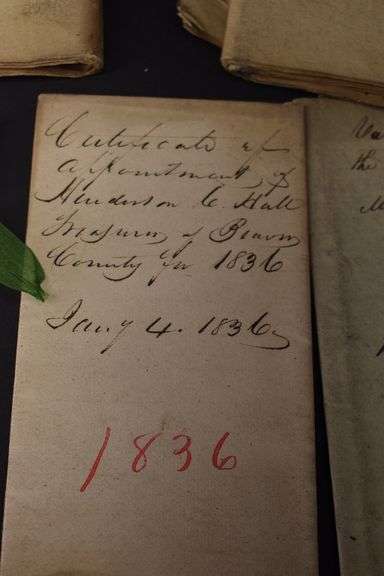 Certificate of
appointment of
Henderson C. Hall
Treasurer of Beaver
County for 1836
Jany 4. 1836
1836
the